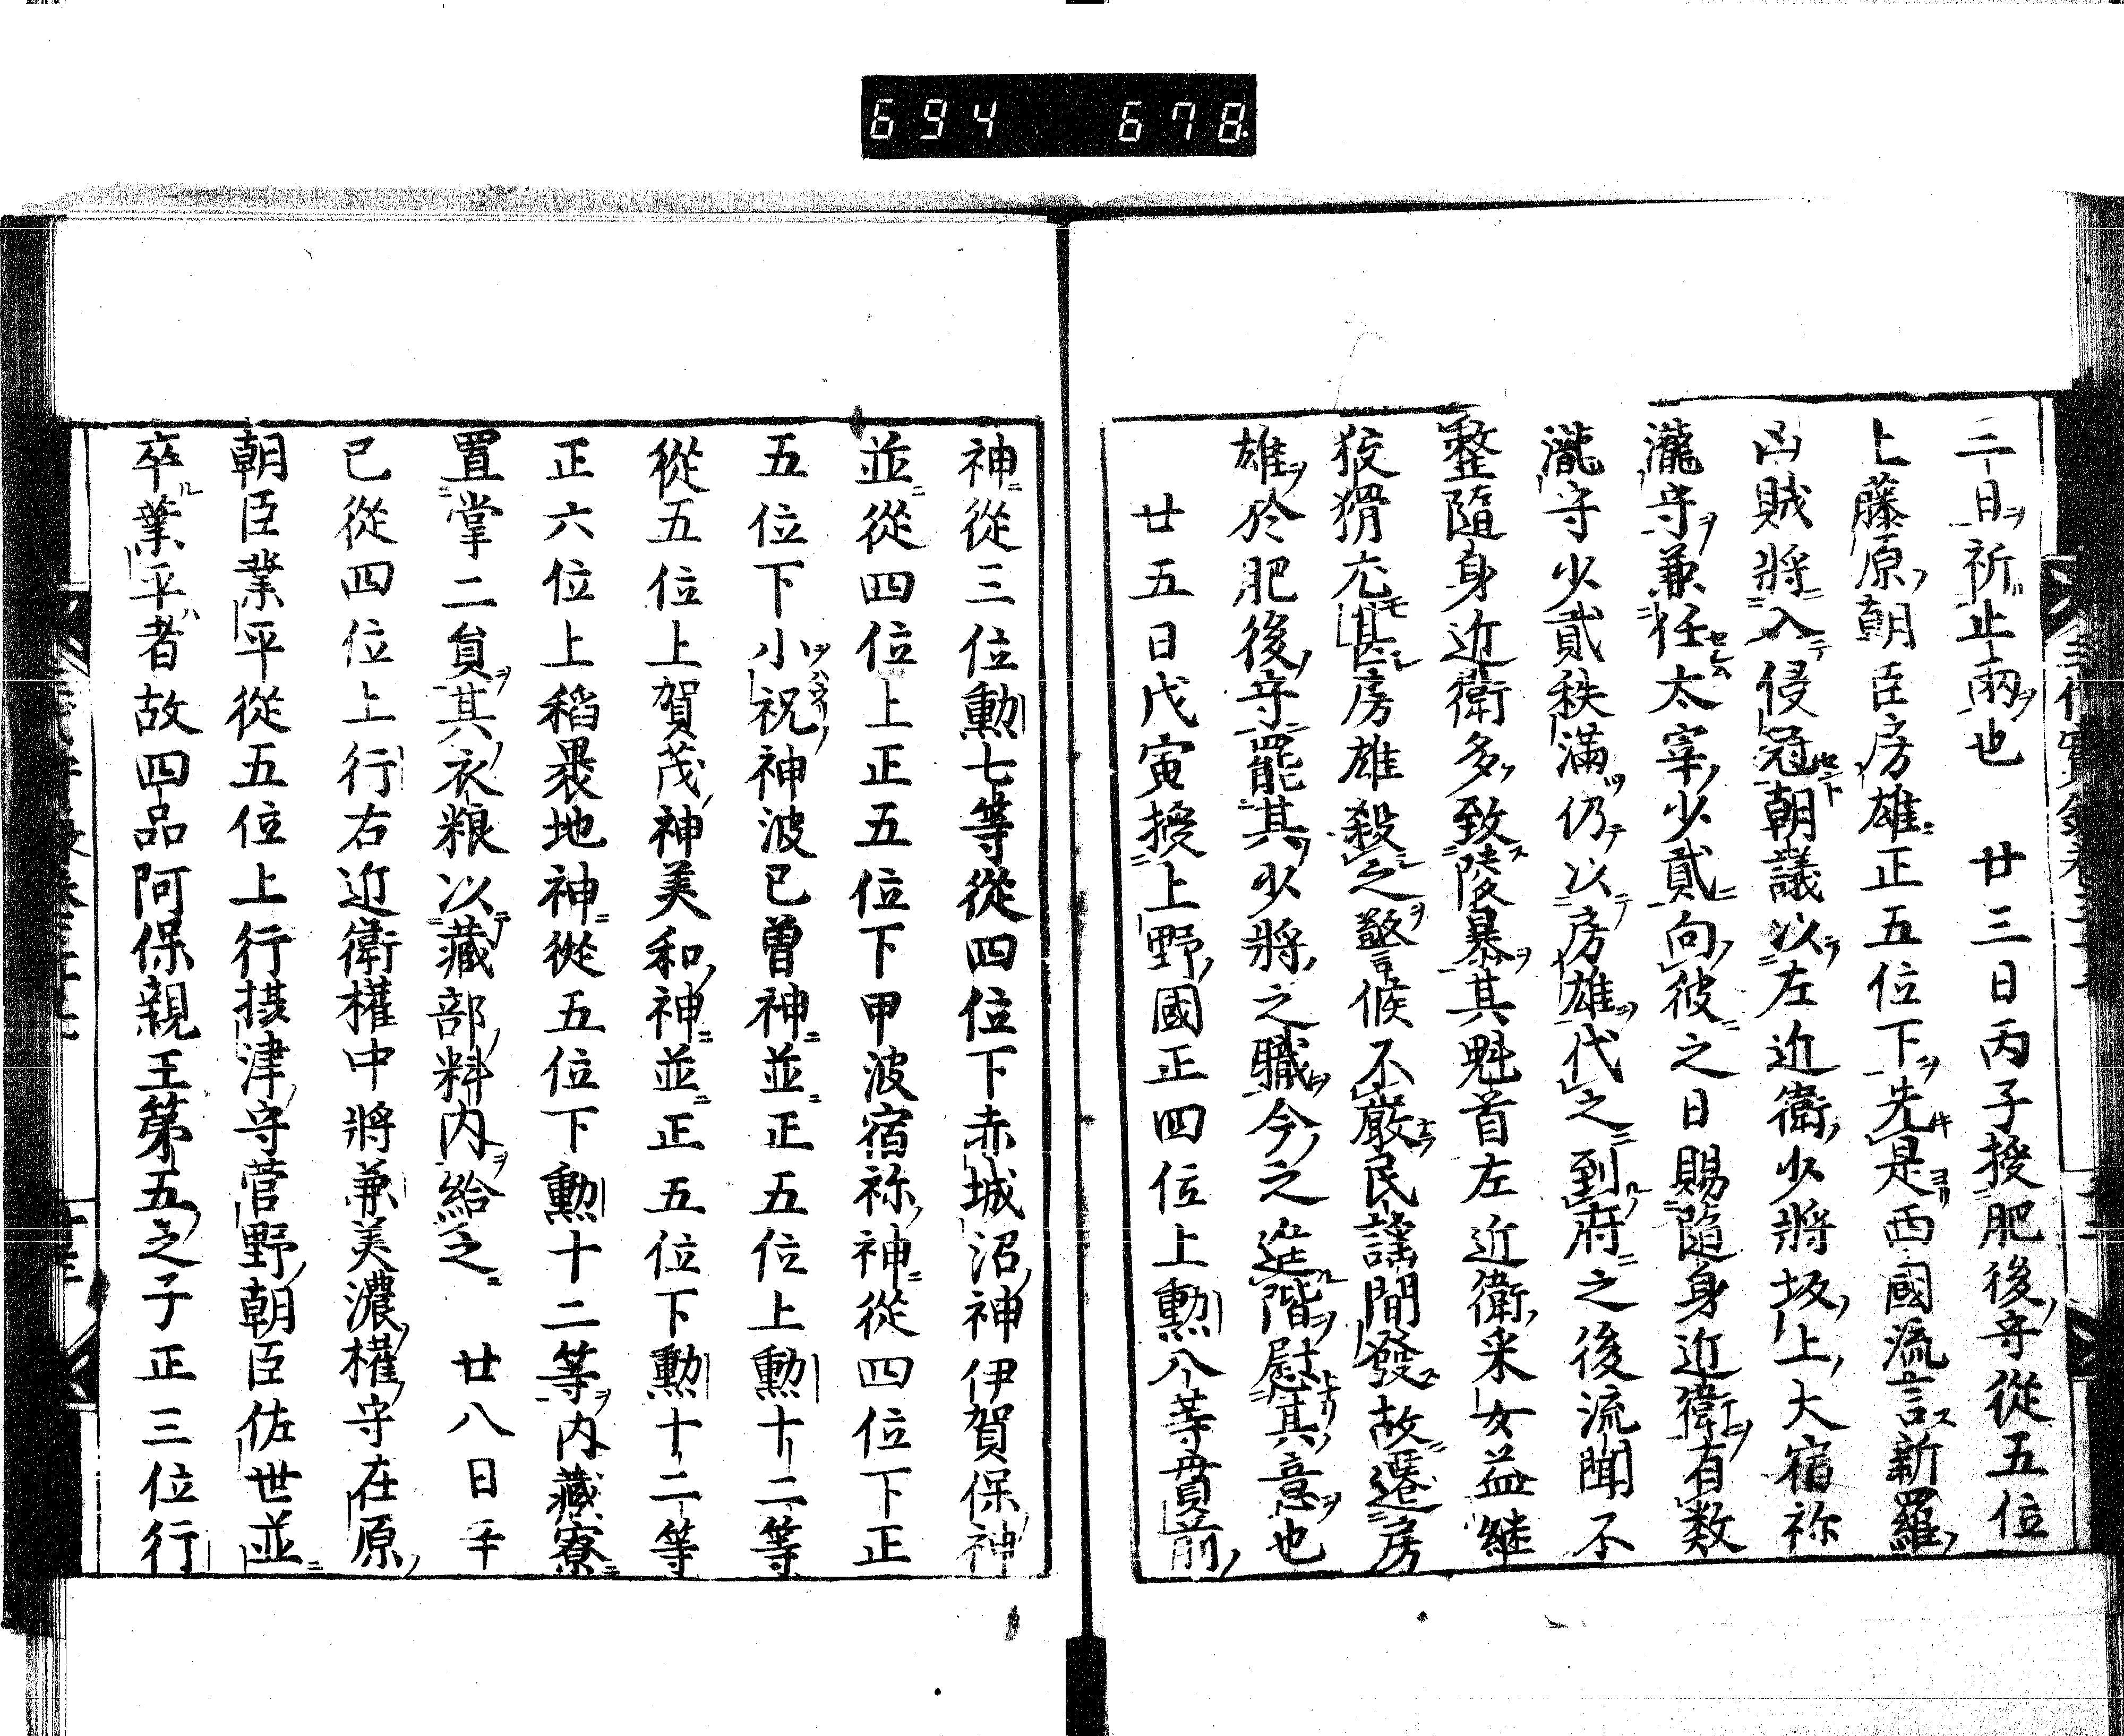 694 678
二日祈止雨也 廿三日丙子授肥後守從五位
上藤原朝臣房雄正五位下先是西國流言新羅
凶賊將入侵冦朝議以左近衛少將坂上大宿祢
瀧守兼任太宰少貳向彼之日賜隨身近衛有数
瀧守少貳秩満仍以房雄代之到府之後流聞不
整隨身近衛多致陵暴其魁首左近衛采女益継
狡猾尤甚房雄殺之警候不嚴民謡間發故遷房
雄於肥後守罷其少將之職今之進階慰其意也
廿五日戊寅授上野國正四位上勳八等貫前
神從三位勳七等從四位下赤城沼神伊賀保神
並從四位上正五位下甲波宿祢神從四位下正
五位下小祝神波己曽神並正五位上勳十二等
從五位上賀茂神美和神並正五位下勳十二等
正六位上稻褁地神從五位下勳十二等内藏寮
置掌二貟其衣粮以藏部料内給之 廿八日辛
巳從四位上行右近衛權中將兼美濃權守在原
朝臣業平從五位上行摂津守菅野朝臣佐世並
卒業平者故四品阿保親王第五之子正三位行